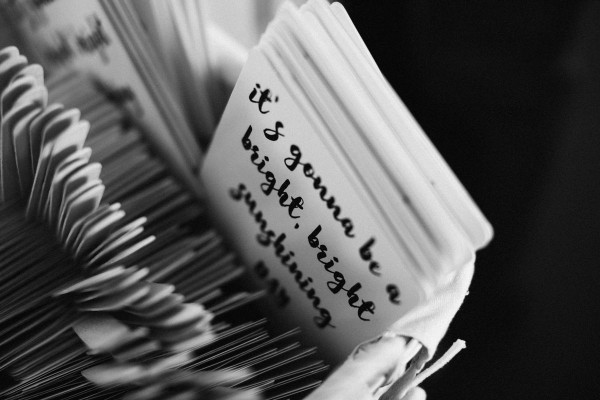 it's gonna be a
bright, bright
sunshining
DAY